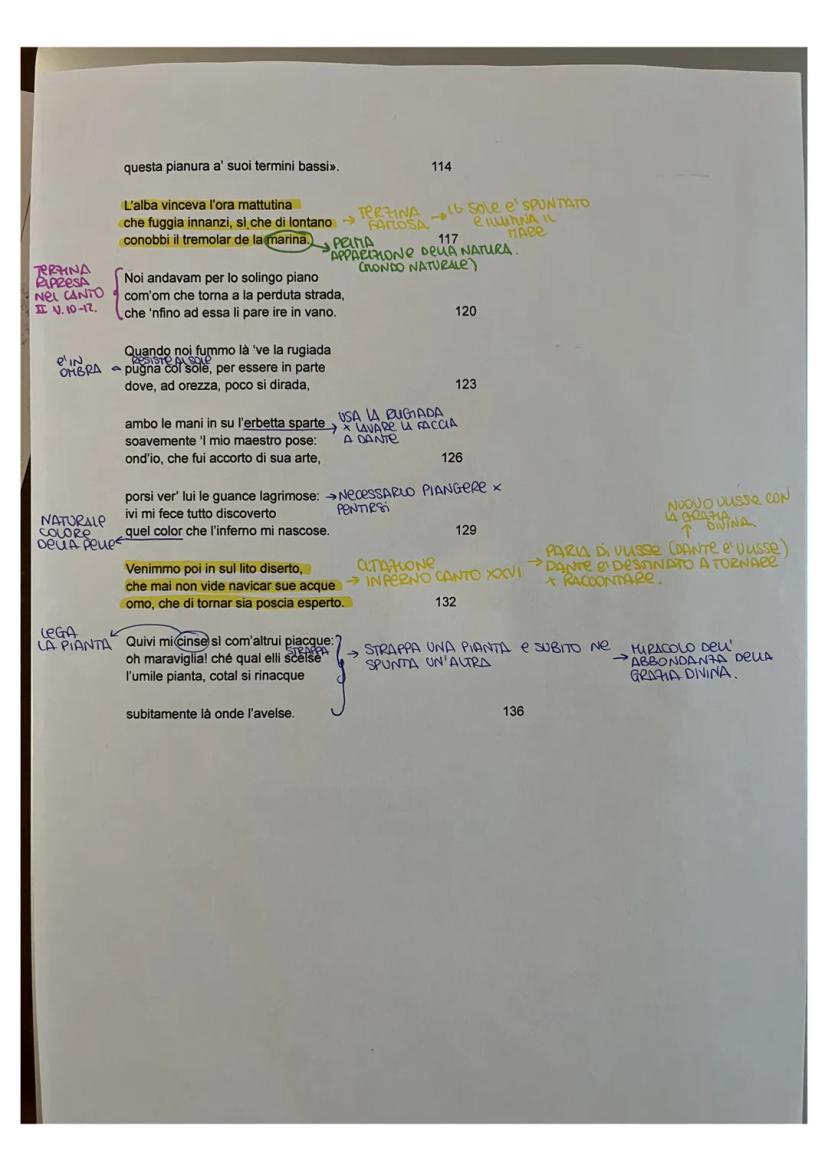 questa pianura a' suoi termini bassi». 114
L'alba vinceva l'ora mattutina
che fuggia innanzi, sì che di lontano
conobbi il tremolar de la marina. 117
→ TERZINA FAMOSA
→ IL SOLE E' SPUNTATO
E ILLUMINA IL
MARE
PRIMA
APPARIZIONE DELLA NATURA.
(MONDO NATURALE)
TERZINA
RIPRESA
NEL CANTO
II V. 10-12.
Noi andavam per lo solingo piano
com'om che torna a la perduta strada,
che 'nfino ad essa li pare ire in vano. 120
Quando noi fummo là 've la rugiada
RESISTE AL SOLE
pugna col sole, per essere in parte
E' IN
OMBRA
dove, ad orezza, poco si dirada, 123
ambo le mani in su l'erbetta sparte
soavemente 'l mio maestro pose:
ond'io, che fui accorto di sua arte, 126
USA LA RUGIADA
x LAVARE LA FACCIA
A DANTE
porsi ver' lui le guance lagrimose:
→ NECESSARIO PIANGERE x
PENTIRSI
ivi mi fece tutto discoverto
quel color che l'inferno mi nascose. 129
NATURALE
COLORE
DELLA PELLE
Venimmo poi in sul lito diserto,
che mai non vide navicar sue acque
omo, che di tornar sia poscia esperto. 132
CITAZIONE
→ INFERNO CANTO XXVI
→ PARLA DI ULISSE (DANTE E' ULISSE)
DANTE E' DESTINATO A TORNARE
x RACCONTARE.
NUOVO ULISSE CON
LA GRAZIA
DIVINA.
LEGA
LA PIANTA
Quivi mi cinse sì com'altrui piacque:
oh maraviglia! ché qual elli scelse
STRAPPA
l'umile pianta, cotal si rinacque
→ STRAPPA UNA PIANTA E SUBITO NE
SPUNTA UN'ALTRA
→ MIRACOLO DELL'
ABBONDANZA DELLA
GRAZIA DIVINA.
subitamente là onde l'avelse. 136